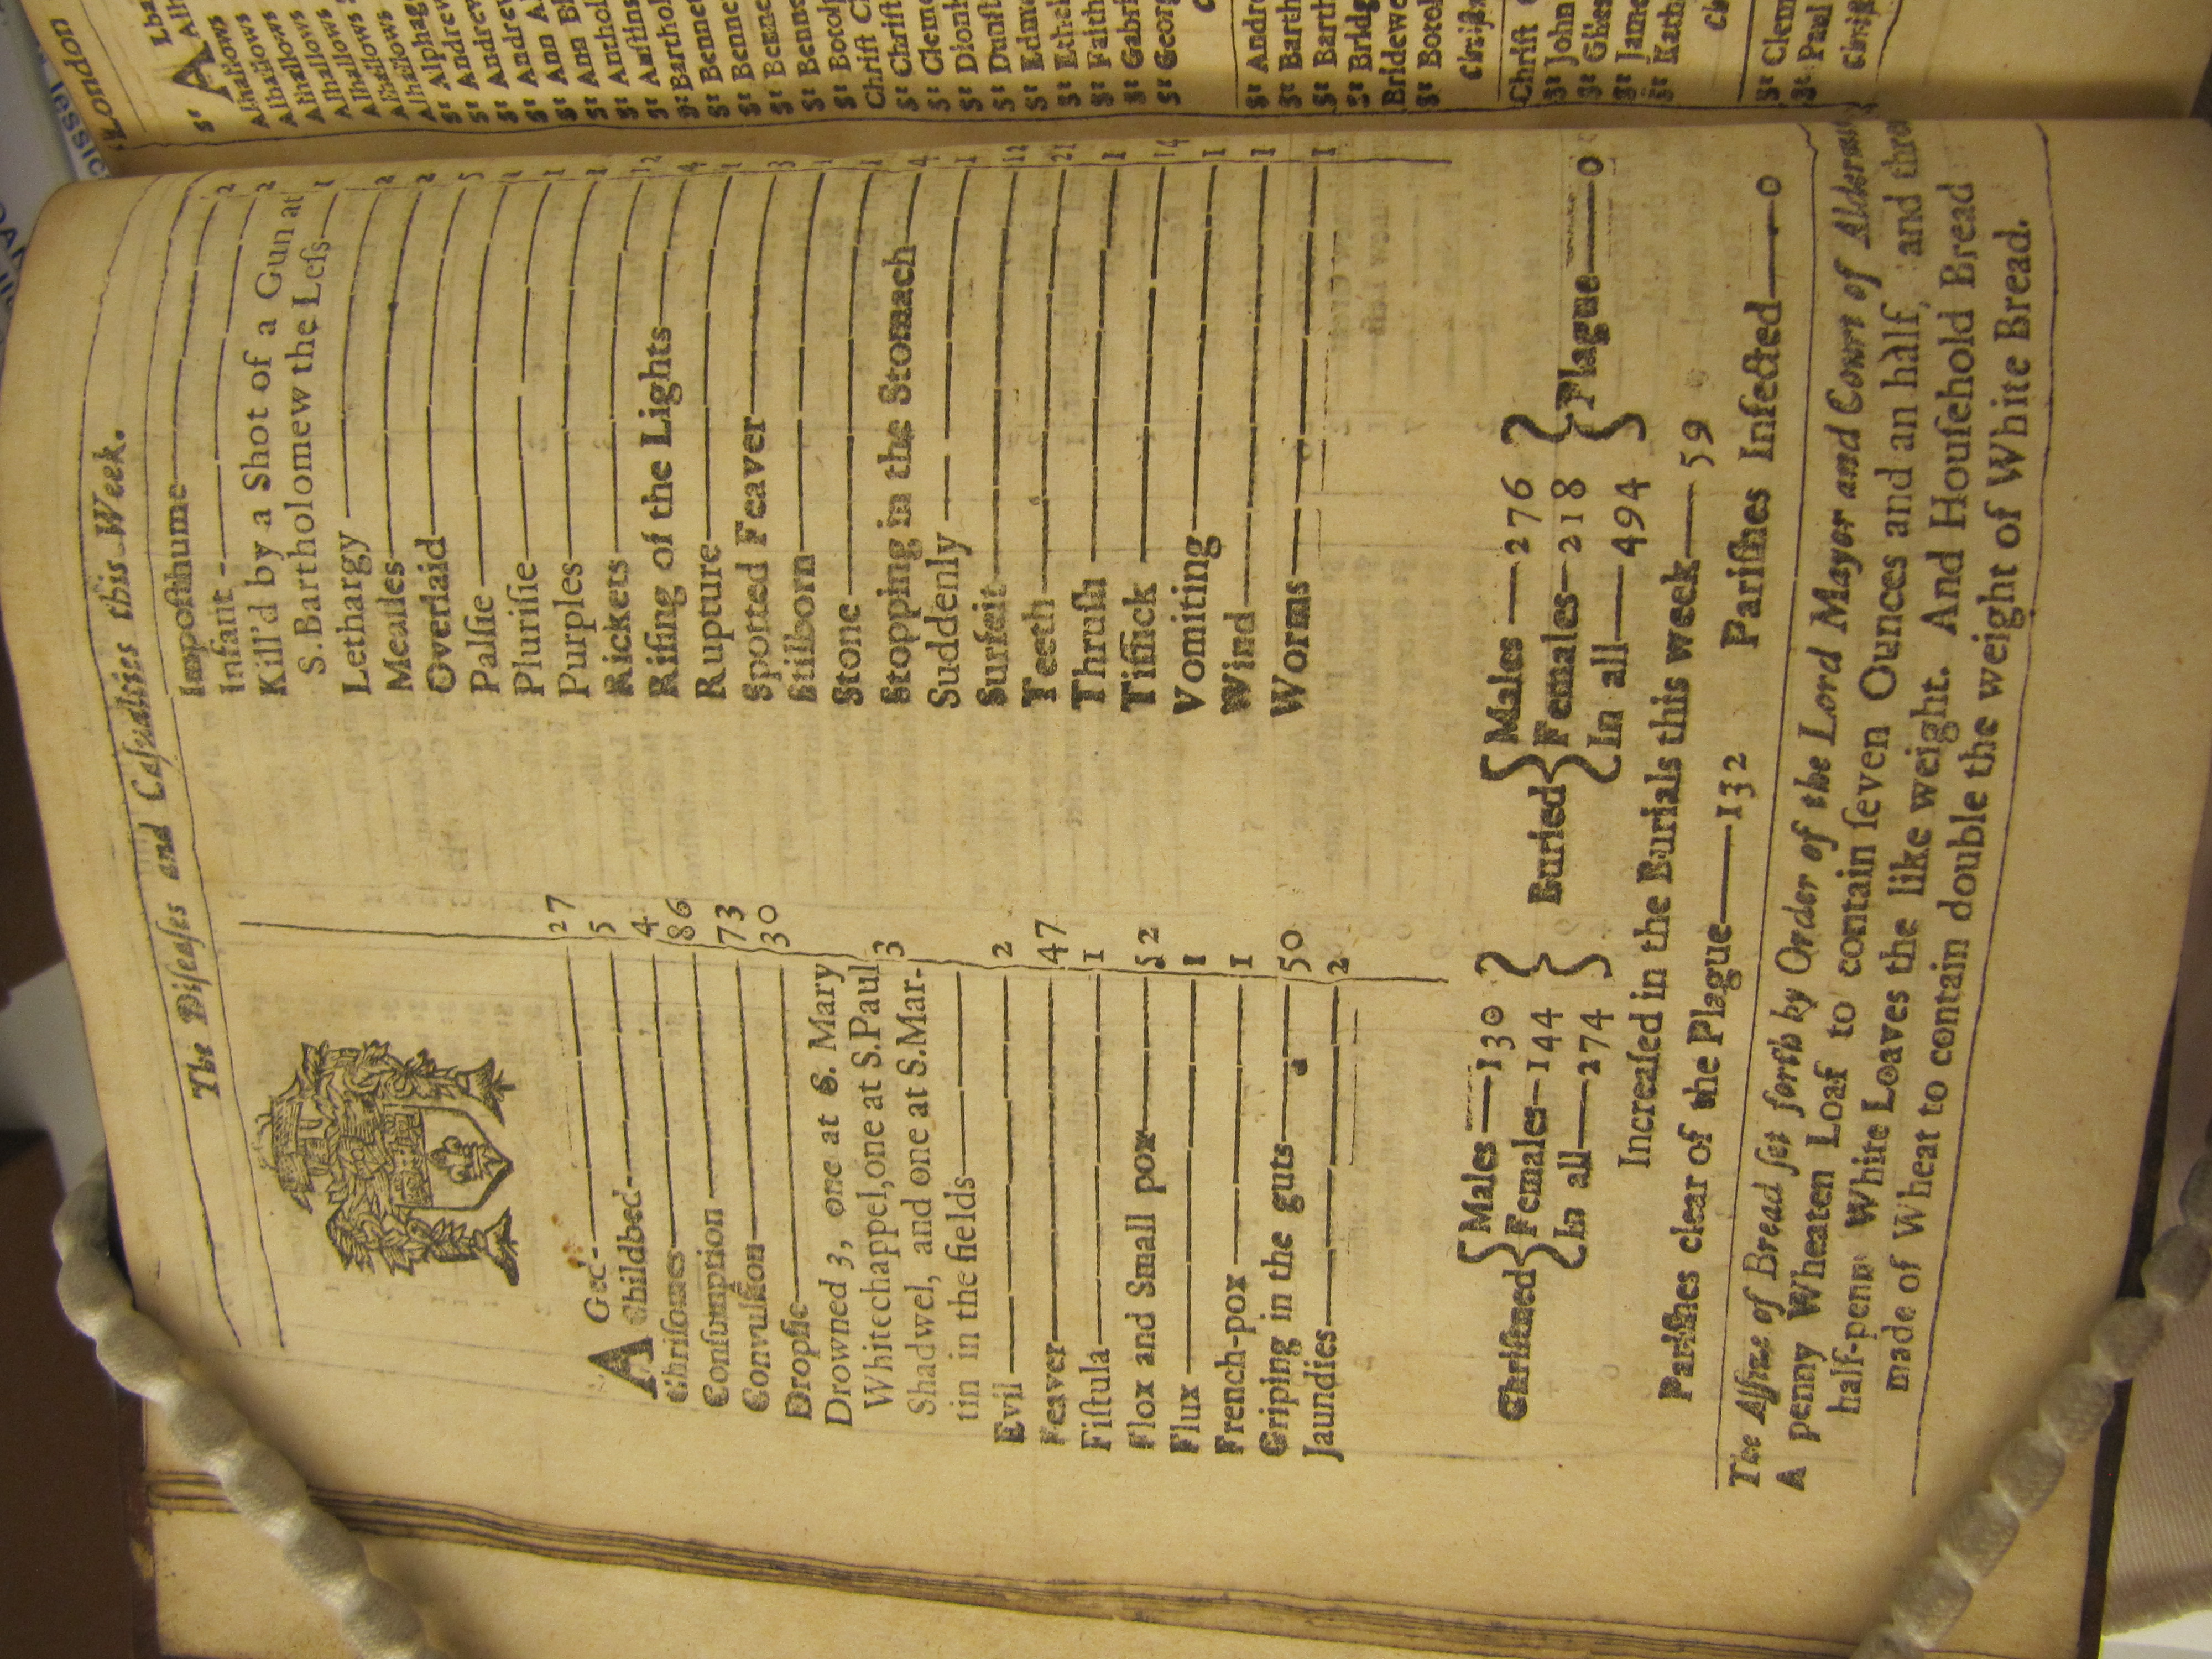 The Diſeaſes and Caſualties this Week.
AGed 27
Childbed 5
Chriſomes 4
Conſumption 86
Convulſion 73
Dropſie 30
Drowned 3, one at S. Mary
Whitechappel, one at S. Paul 3
Shadwel, and one at S. Mar-
tin in the fields
Evil 2
Feaver 47
Fiſtula 1
Flox and Small pox 52
Flux 1
French-pox 1
Griping in the guts 50
Jaundies 2
Impoſthume 2
Infant 2
Kill'd by a Shot of a Gun at
S. Bartholomew the Leſs 1
Lethargy 2
Meaſles 2
Overlaid 5
Palſie
Pluriſie 1
Purples 1
Rickets 12
Riſing of the Lights 4
Rupture 1
Spotted Feaver 3
Stilborn
Stone 1
Stopping in the Stomach 4
Suddenly 1
Surfeit 12
Teeth 21
Thruſh 1
Tiſſick 14
Vomiting 1
Wind 1
Worms 1
Chriſtned { Males 130 Females 144 In all 274 }
Buried { Males 276 Females 218 In all 494 } Plague 0
Increaſed in the Burials this week 59
Pariſhes clear of the Plague 132 Pariſhes Infected 0
The Aſſize of Bread ſet forth by Order of the Lord Mayor and Court of
A penny Wheaten Loaf to contain ſeven Ounces and an half, and
half-penny White Loaves the like weight. And Houſehold Bread
made of Wheat to contain double the weight of White Bread.
London
Alhallows
Alhallows
Alhallows
Alhallows
Alhallows
Alhallows
St
St Andrew
St Andrew
St Andrew
St Ann
St Ann
St
St
St
St
St
St
St
St
Chriſt
St Chriſt
St
St
St
St
St
St Faith
St
St
St
St
St
St
St
Chriſt
St John
St
St
St
St
St Paul